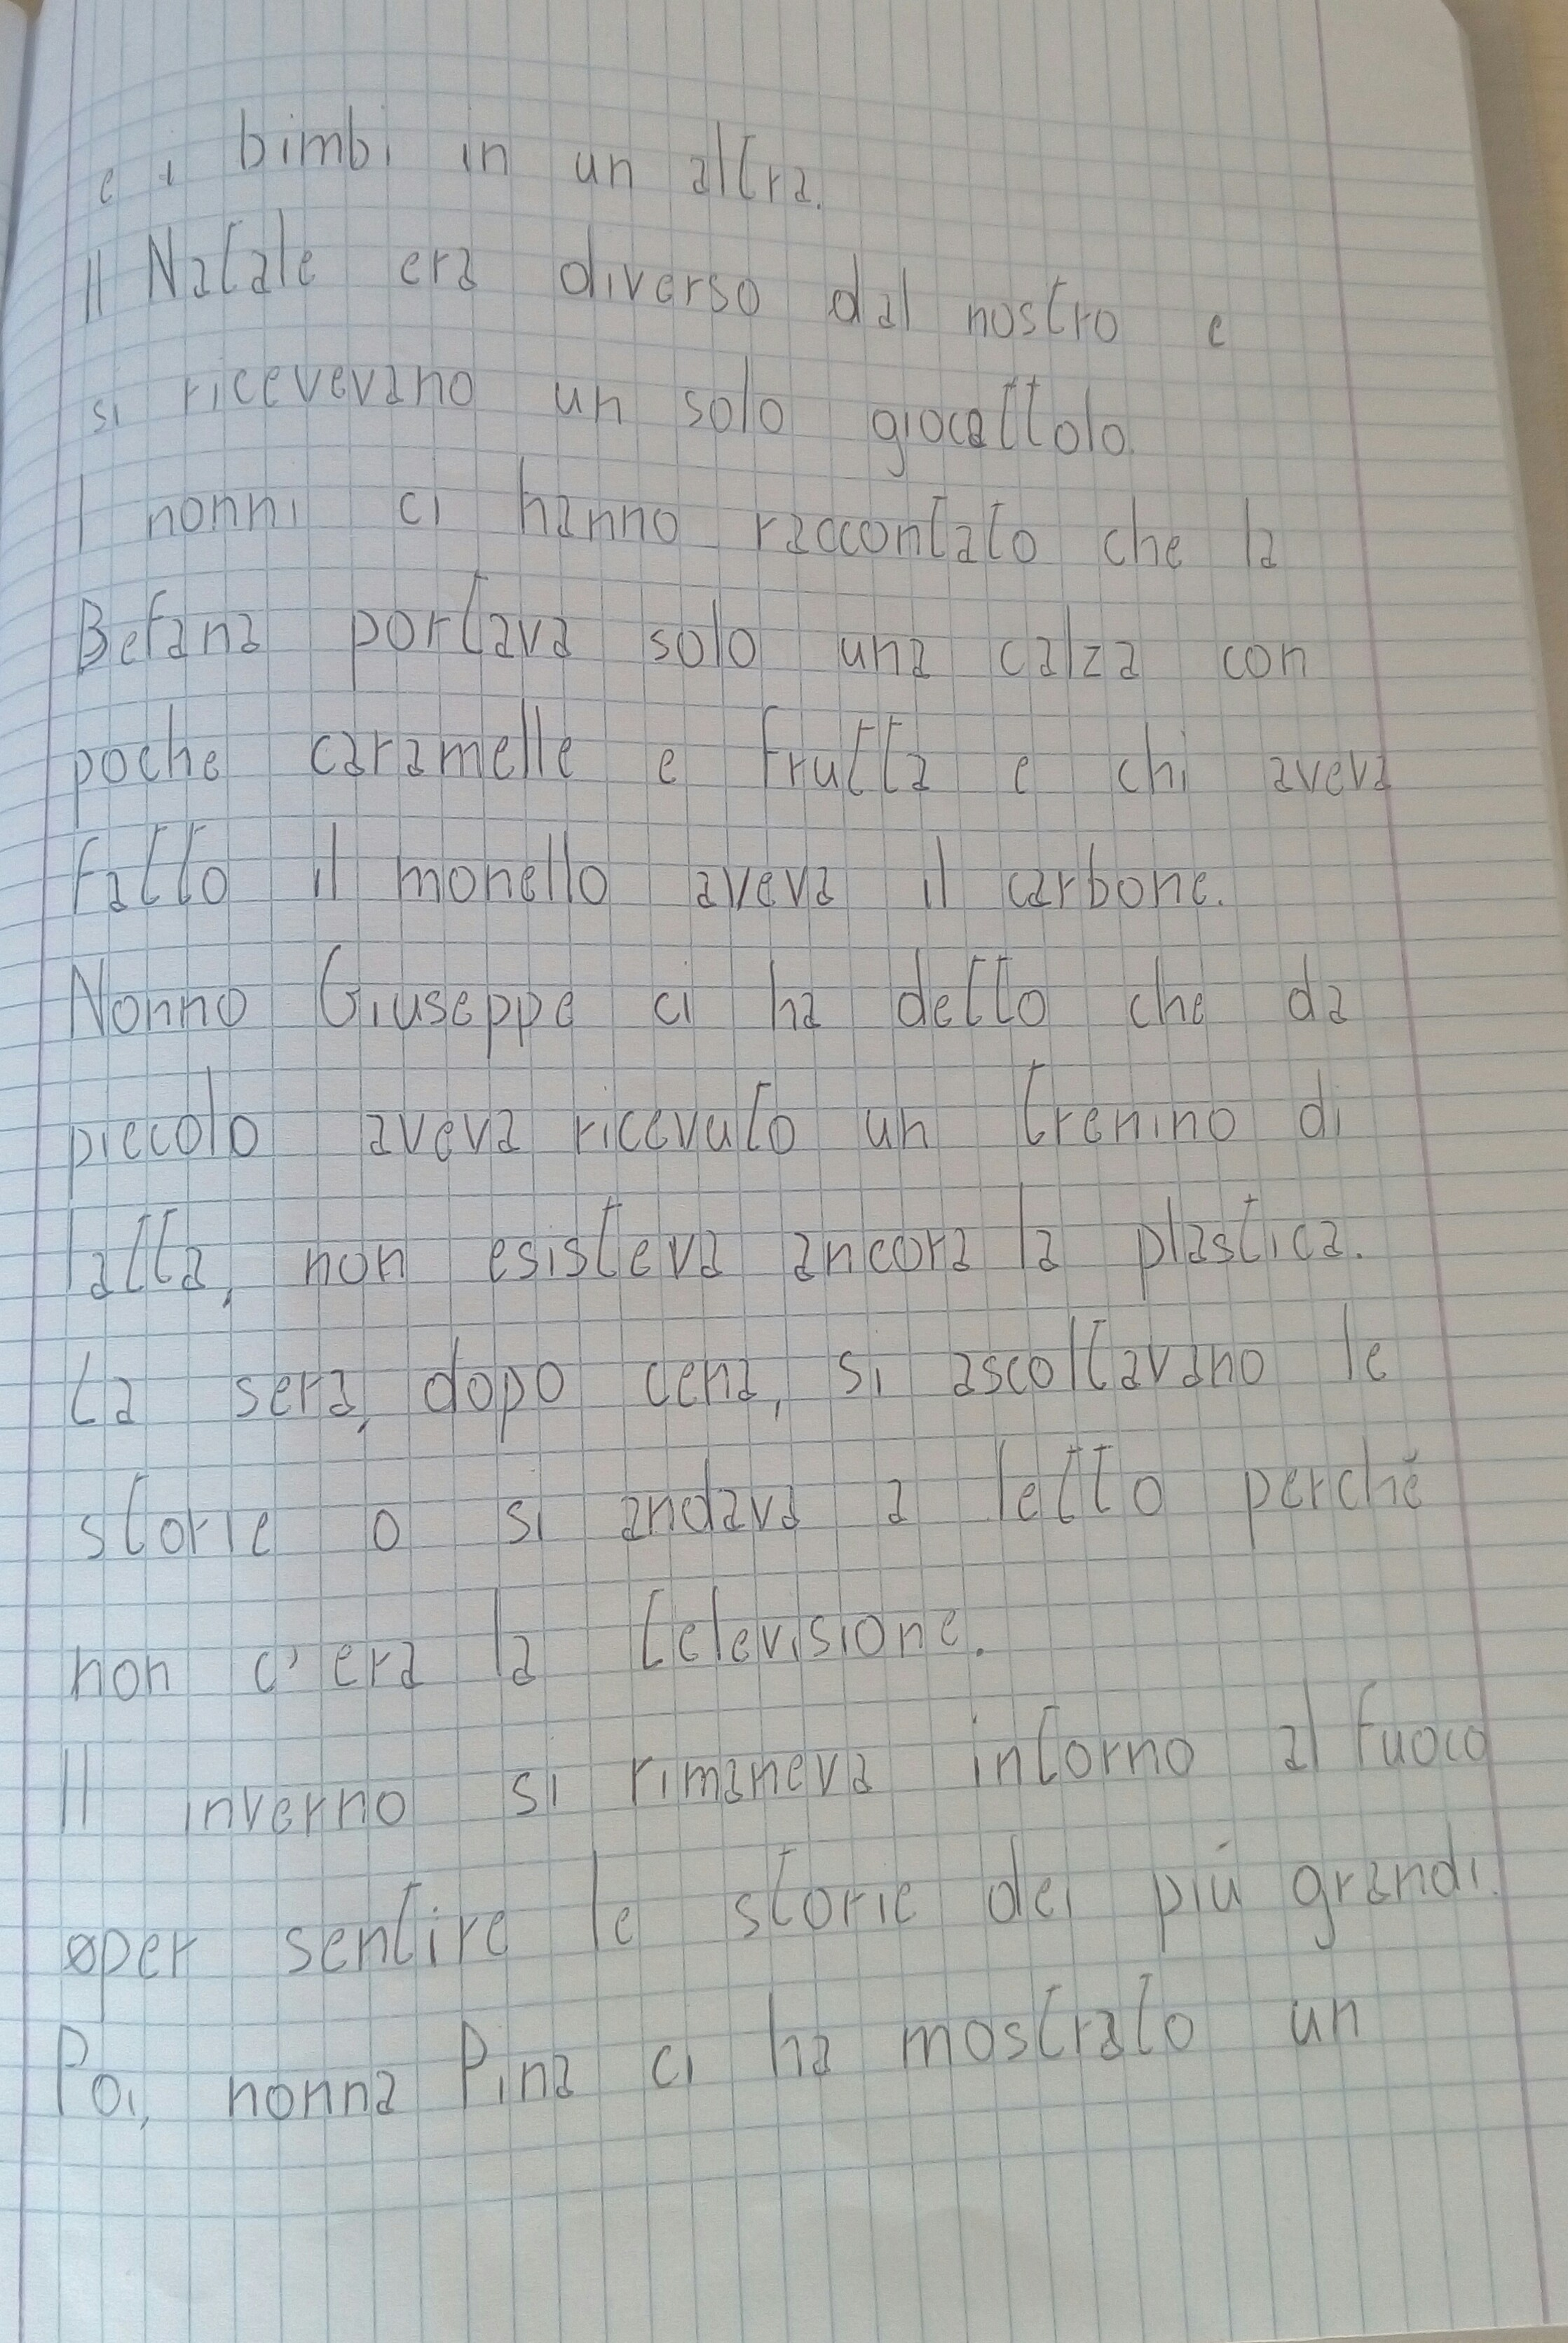 e i bimbi in un altra.
Il Natale era diverso dal nostro e
si ricevevano un solo giocattolo.
I nonni ci hanno raccontato che la
Befana portava solo una calza con
poche caramelle e frutta e chi aveva
fatto il monello aveva il carbone.
Nonno Giuseppe ci ha detto che da
piccolo aveva ricevuto un trenino di
latta, non esisteva ancora la plastica.
La sera, dopo cena, si ascoltavano le
storie o si andava a letto perché
non c'era la televisione.
Il inverno si rimaneva intorno al fuoco
per sentire le storie dei più grandi.
Poi, nonna Pina ci ha mostrato un